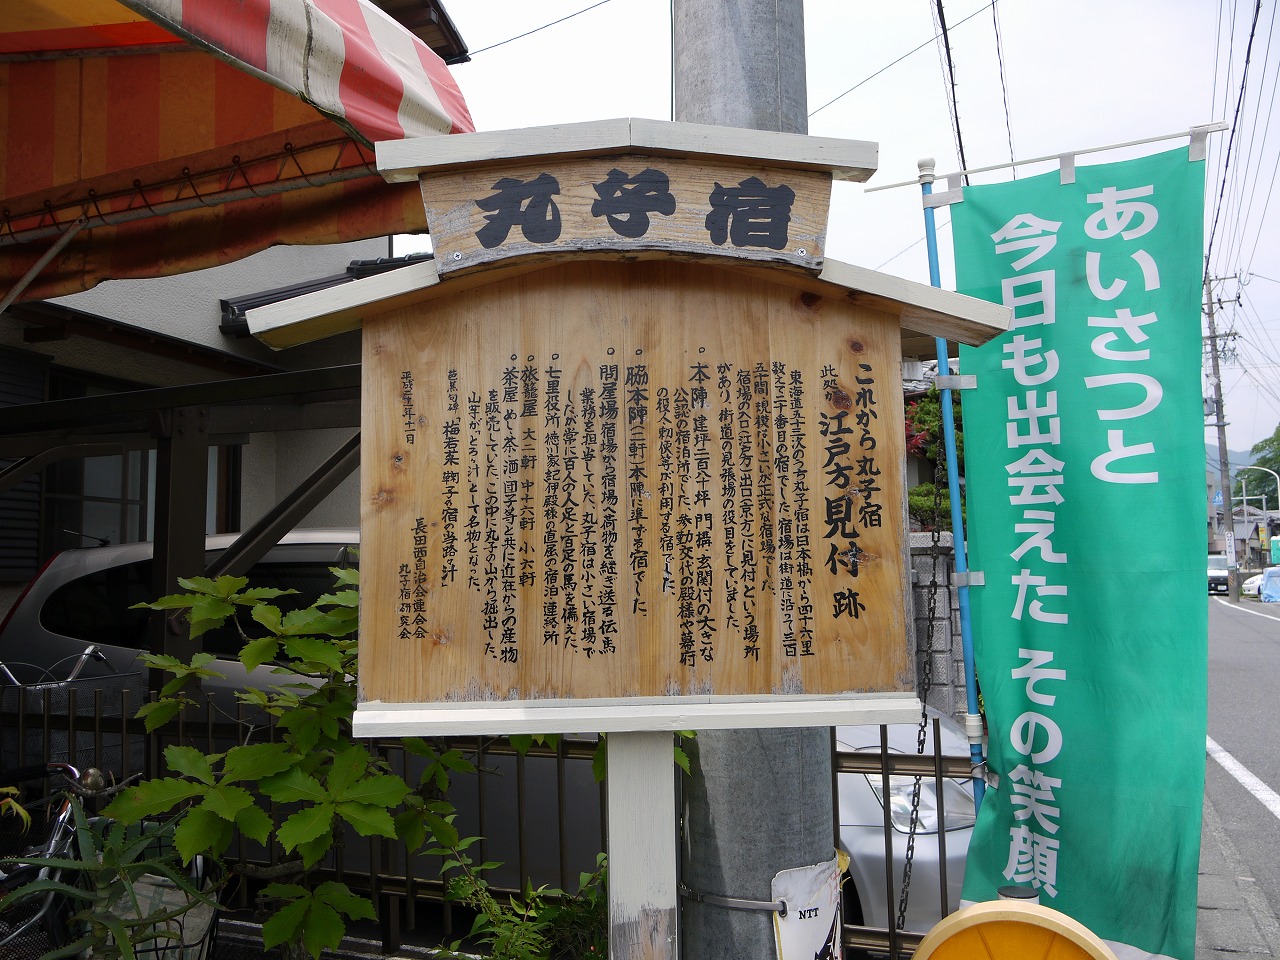 丸子宿
これから丸子宿
此処が 江戸方見付跡
東海道五十三次のうち丸子宿は日本橋から四十六里
数えて二十番目の宿でした。宿場は街道に沿って三百
五十間、規模は小さいが正式な宿場でした。
宿場の入口(江戸方)出口(京方)に見付という場所
があり、街道の見張場の役目をしていました。
○本陣 建坪二百八十坪 門構・玄関付の大きな
公認の宿泊所でした。参勤交代の殿様や幕府
の役人勅使等が利用する宿でした。
○脇本陣(二軒)本陣に準ずる宿でした。
○問屋場 宿場から宿場へ荷物を継ぎ送る伝馬
業務を担当していた。丸子宿は小さい宿場で
したが常に百人の人足と百疋の馬を備えた。
○七里役所 徳川家紀伊殿様の直属の宿泊・連絡所
○旅籠屋 大二軒 中十六軒 小六軒
○茶屋 めし・茶・酒・団子等と共に近在からの産物
を販売していた。この中に丸子の山から掘出した、
山芋が「とろろ汁」として名物となった。
芭蕉句碑「梅若菜 鞠子の宿のとろろ汁」
長田西自治会連合会
丸子宿研究会
あいさつと
今日も出会えた その笑顔
NTT